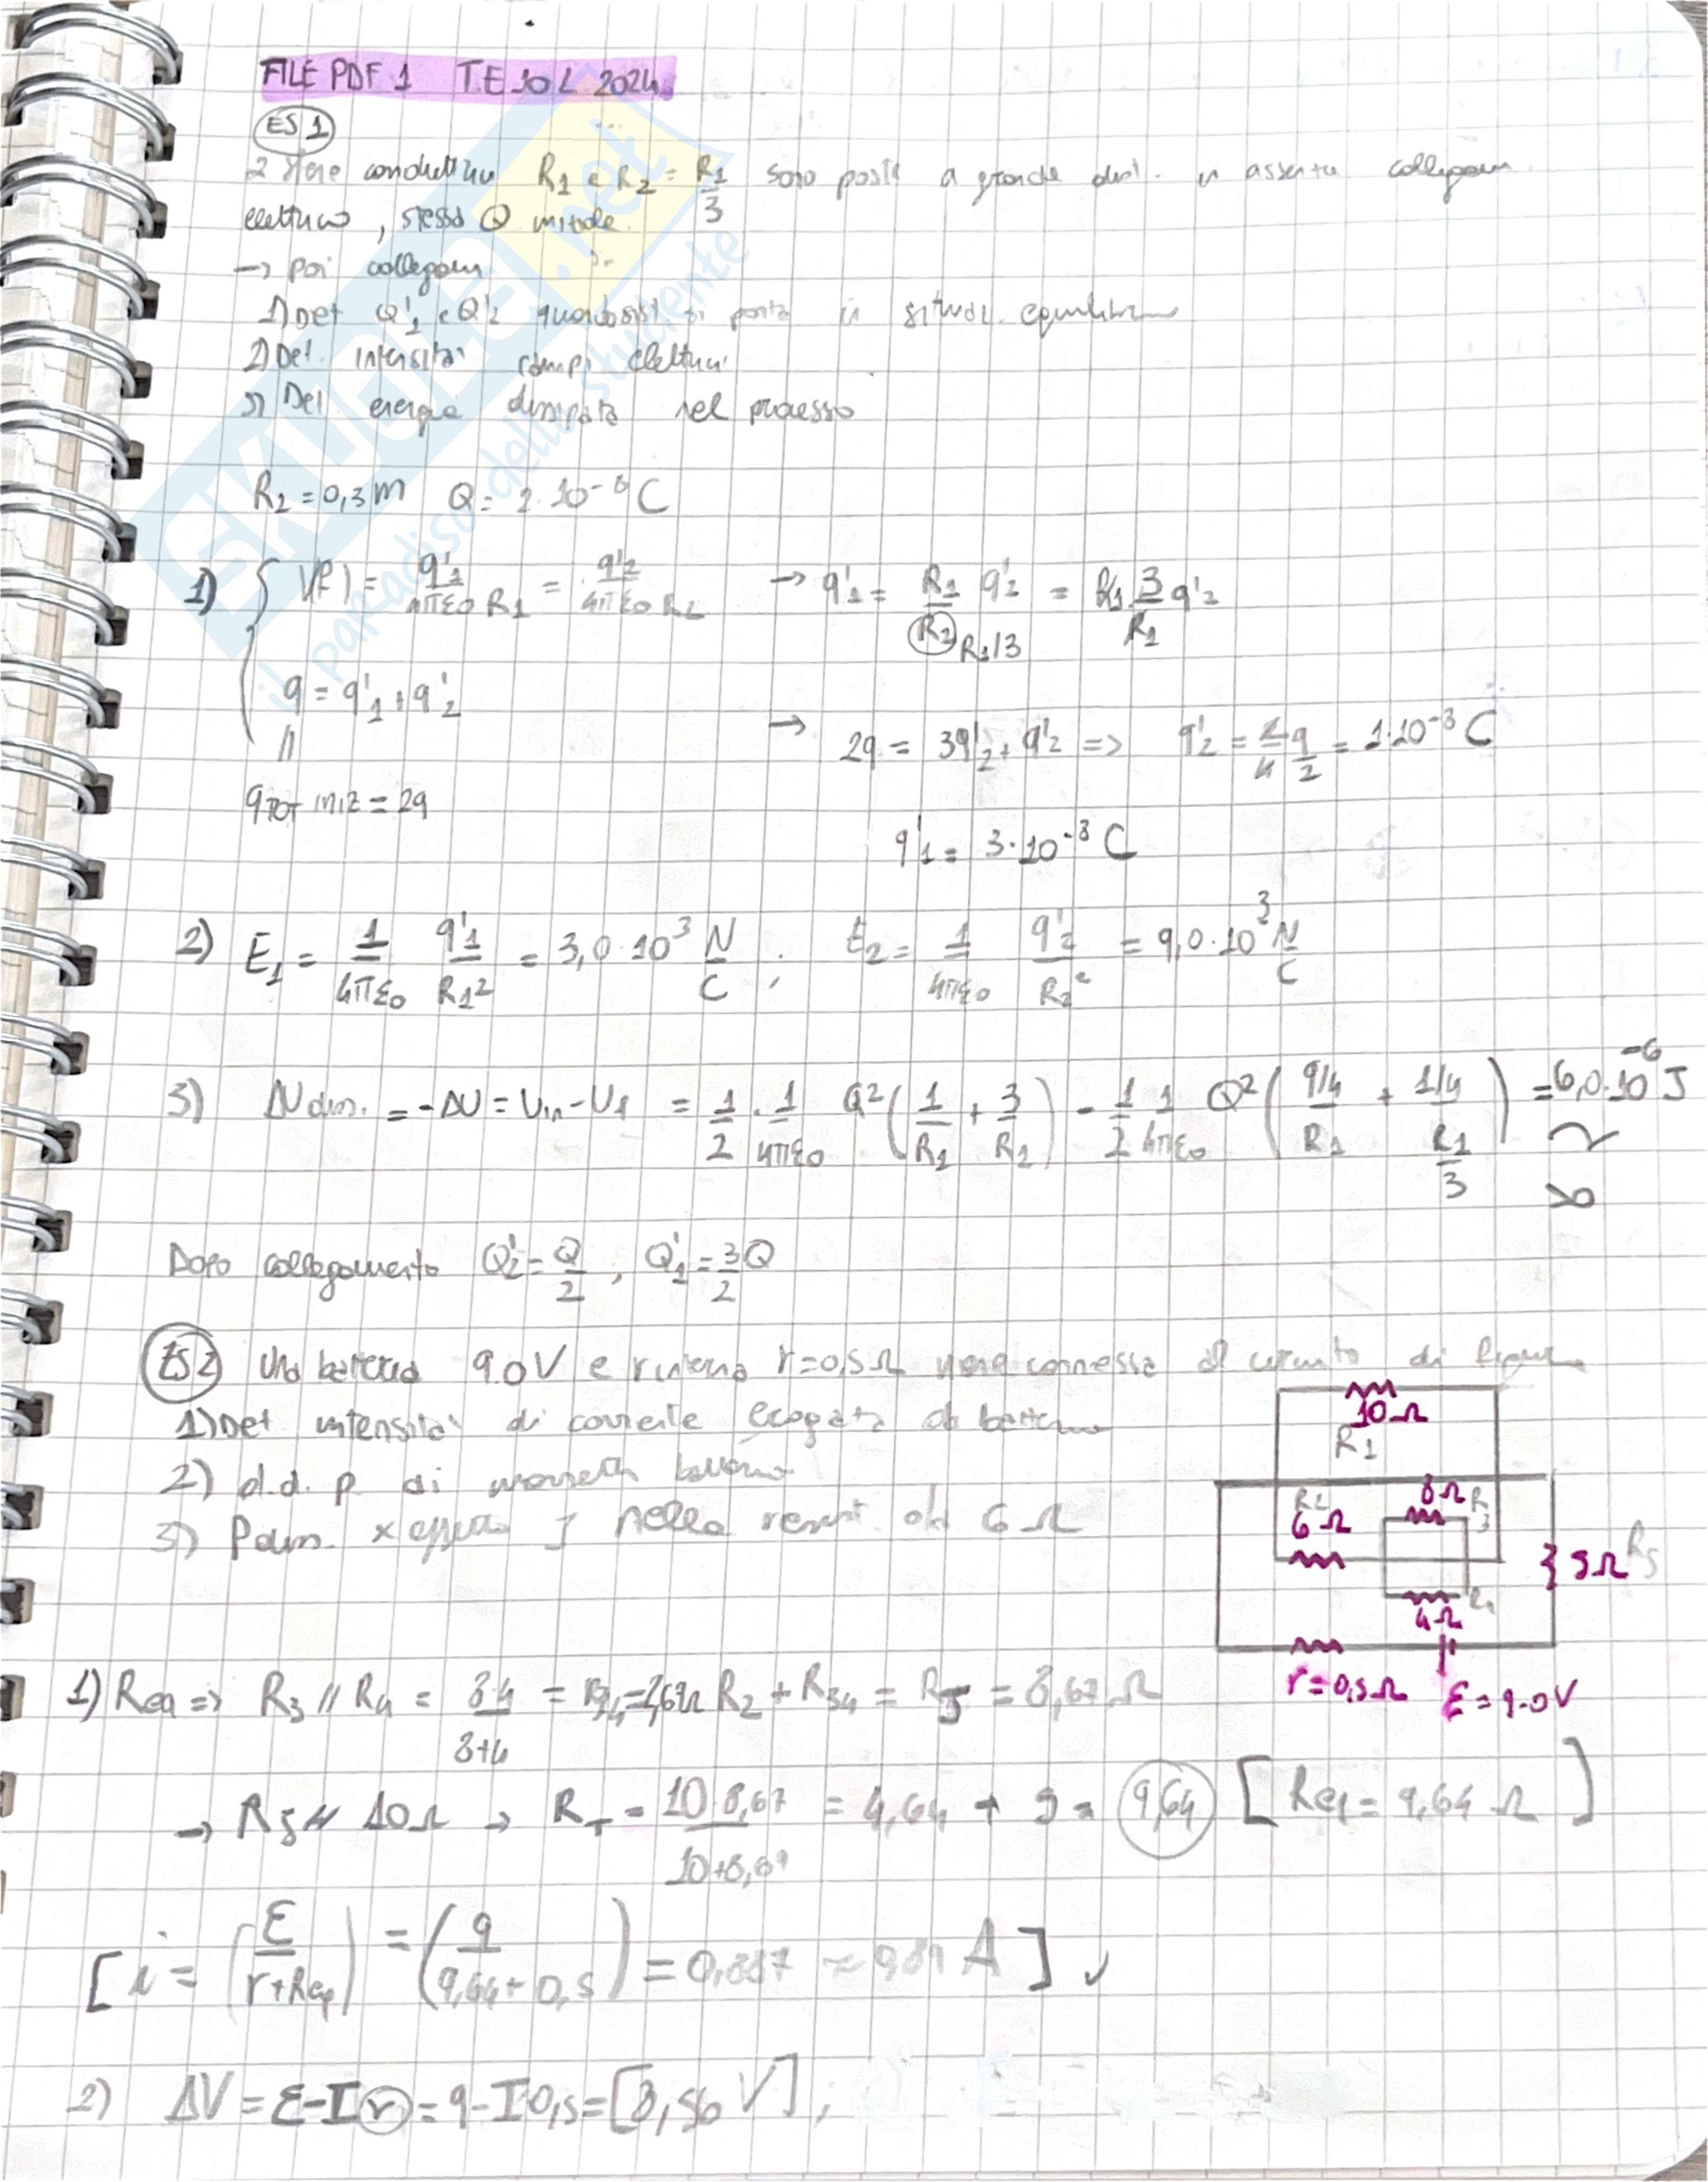 FILE PDF 1 T.E 10L 2024
ES 1
2 sfere conduttrici R1 e R2 = R1/3 sono poste a grande dist. in assenza collegam.
elettrico, stessa Q iniziale.
→ poi collegam
1) Det Q'1 e Q'2 quando sist si porta in situaz. equilibrio
2) Det. intensità campi elettrici
3) Det energia dissipata nel processo
R2 = 0,3 m Q = 2·10⁻⁸ C
1) { V(R) = q'1/4πε0 R1 = q'2/4πε0 R2 → q'1 = R1/R2 q'2 = R1 3/R1 q'2
R1/3
q = q'1 + q'2
→ 2q = 3q'2 + q'2 => q'2 = 2/4 q/2 = 1·10⁻⁸ C
//
qTOT iniz = 2q
q'1 = 3·10⁻⁸ C
2) E1 = 1/4πε0 q'1/R1² = 3,0·10³ N/C ; E2 = 1/4πε0 q'2/R2² = 9,0·10³ N/C
3) ΔU diss. = -ΔU = Uin - Uf = 1/2 · 1/4πε0 Q² (1/R1 + 3/R1) - 1/2 1/4πε0 Q² (9/4/R1 + 1/4/R1/3) = 6,0·10⁻⁶ J
Dopo collegamento Q'2 = Q/2 , Q'1 = 3/2 Q
ES 2 Una batteria 9.0 V e r interna r = 0,5 Ω viene connessa al circuito di figura
1) Det intensità di corrente erogata da batteria
2) d.d.p. ai morsetti batteria
3) P dissi. x effetto J nella resist. da 6 Ω
10 Ω
R1
R2
6 Ω
8 Ω R3
R4
4 Ω
5 Ω R5
r = 0,5 Ω ε = 9.0 V
1) Req => R3 // R4 = 8·4/8+4 = R34 = 2,67 Ω R2 + R34 = R5 = 8,67 Ω
→ R5 // 10 Ω → RT = 10·8,67/10+8,67 = 4,64 + 5 = 9,64 [Req = 9,64 Ω]
[i = (ε/r+Req) = (9/9,64+0,5) = 0,887 ≈ 0,89 A] ✓
2) ΔV = ε - I r = 9 - I 0,5 = [8,56 V] ;